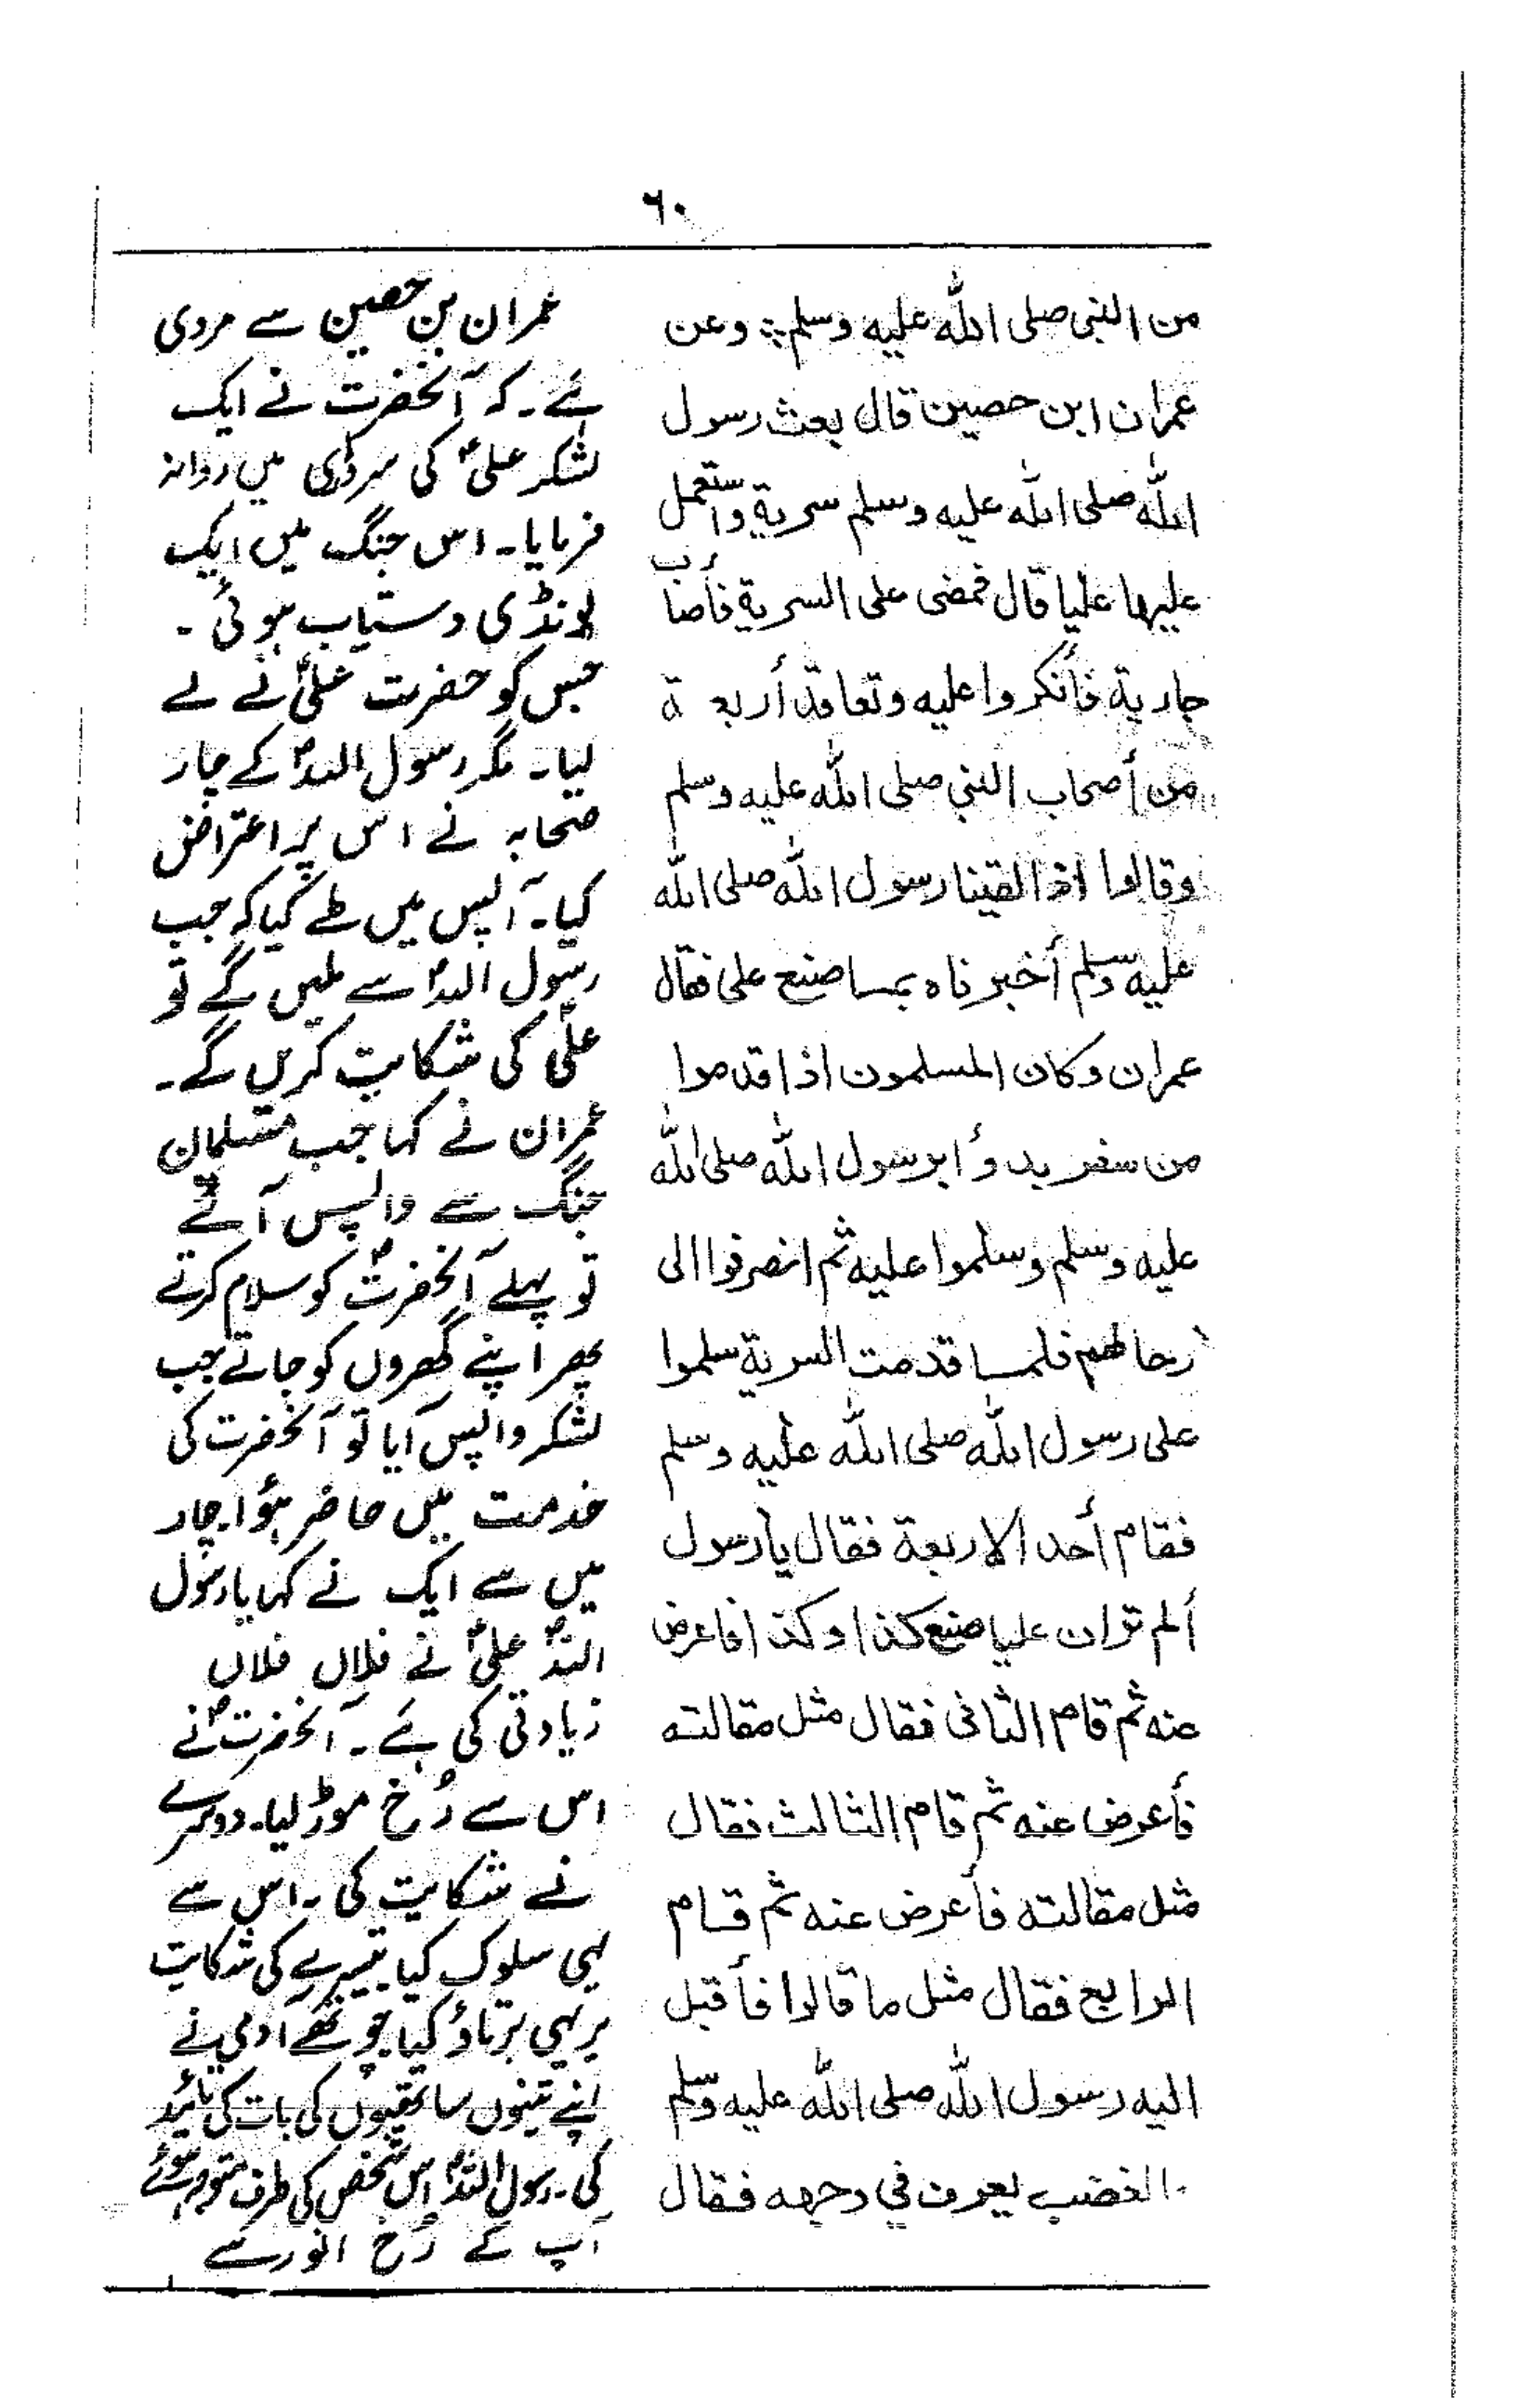 ٦٠
من النبی صلی اللہ علیہ وسلم ؞ وعن
عمران ابن حصین قال بعث رسول
اللہ صلی اللہ علیہ وسلم سریة واستعمل
علیہا علیا قال فمضی علی السریة فأصاب
جاریة فأنکروا علیہ وتعاقد أربعة
من أصحاب النبی صلی اللہ علیہ وسلم
وقالوا اذا لقینا رسول اللہ صلی اللہ
علیہ وسلم أخبرناہ بمـا صنع علی فقال
عمران وکان المسلمون اذا قدموا
من سفر یدؤا برسول اللہ صلی اللہ
علیہ وسلم وسلموا علیہ ثم انصرفوا الی
رحالھم فلمـا قدمت السریة سلموا
علی رسول اللہ صلی اللہ علیہ وسلم
فقام أحد الاربعة فقال یا رسول
ألم تر ان علیا صنع کذا وکذا فاعرض
عنه ثم قام الثانی فقال مثل مقالته
فأعرض عنه ثم قام الثالث فقال
مثل مقالته فأعرض عنه ثم قـام
الرابع فقال مثل ما قالوا فأقبل
الیه رسول اللہ صلی اللہ علیه وسلم
الغضب یعرف في وجهه فقال
عمران بن حصین سے مروی
ہے۔ کہ آنحضرت نے ایک
لشکر علیؑ کی سرداری میں روانہ
فرمایا۔ اس جنگ میں ایک
لونڈی دستیاب ہوئی۔
جس کو حضرت علیؑ نے لے
لیا۔ مگر رسول اللہؐ کے چار
صحابہ نے اس پر اعتراض
کیا۔ آپس میں طے کیا کہ جب
رسول اللہؐ سے ملیں گے تو
علیؑ کی شکایت کریں گے۔
عمران نے کہا جب مسلمان
جنگ سے واپس آتے
تو پہلے آنحضرتؐ کو سلام کرتے
پھر اپنے گھروں کو جاتے جب
لشکر واپس آیا تو آنحضرت کی
خدمت میں حاضر ہؤا۔ چار
میں سے ایک نے کہا یا رسول
اللہؐ علیؑ نے فلاں فلاں
زیادتی کی ہے۔ آنحضرتؐ نے
اس سے رُخ موڑ لیا۔ دوسرے
نے شکایت کی۔ اس سے
یہی سلوک کیا تیسرے کی شکایت
پر یہی برتاؤ کیا چوتھے آدمی نے
اپنے تینوں ساتھیوں کی بات کی تائید
کی۔ رسول اللہؐ اس شخص کی طرف متوجہ ہوئے
آپ کے رُخ انور سے